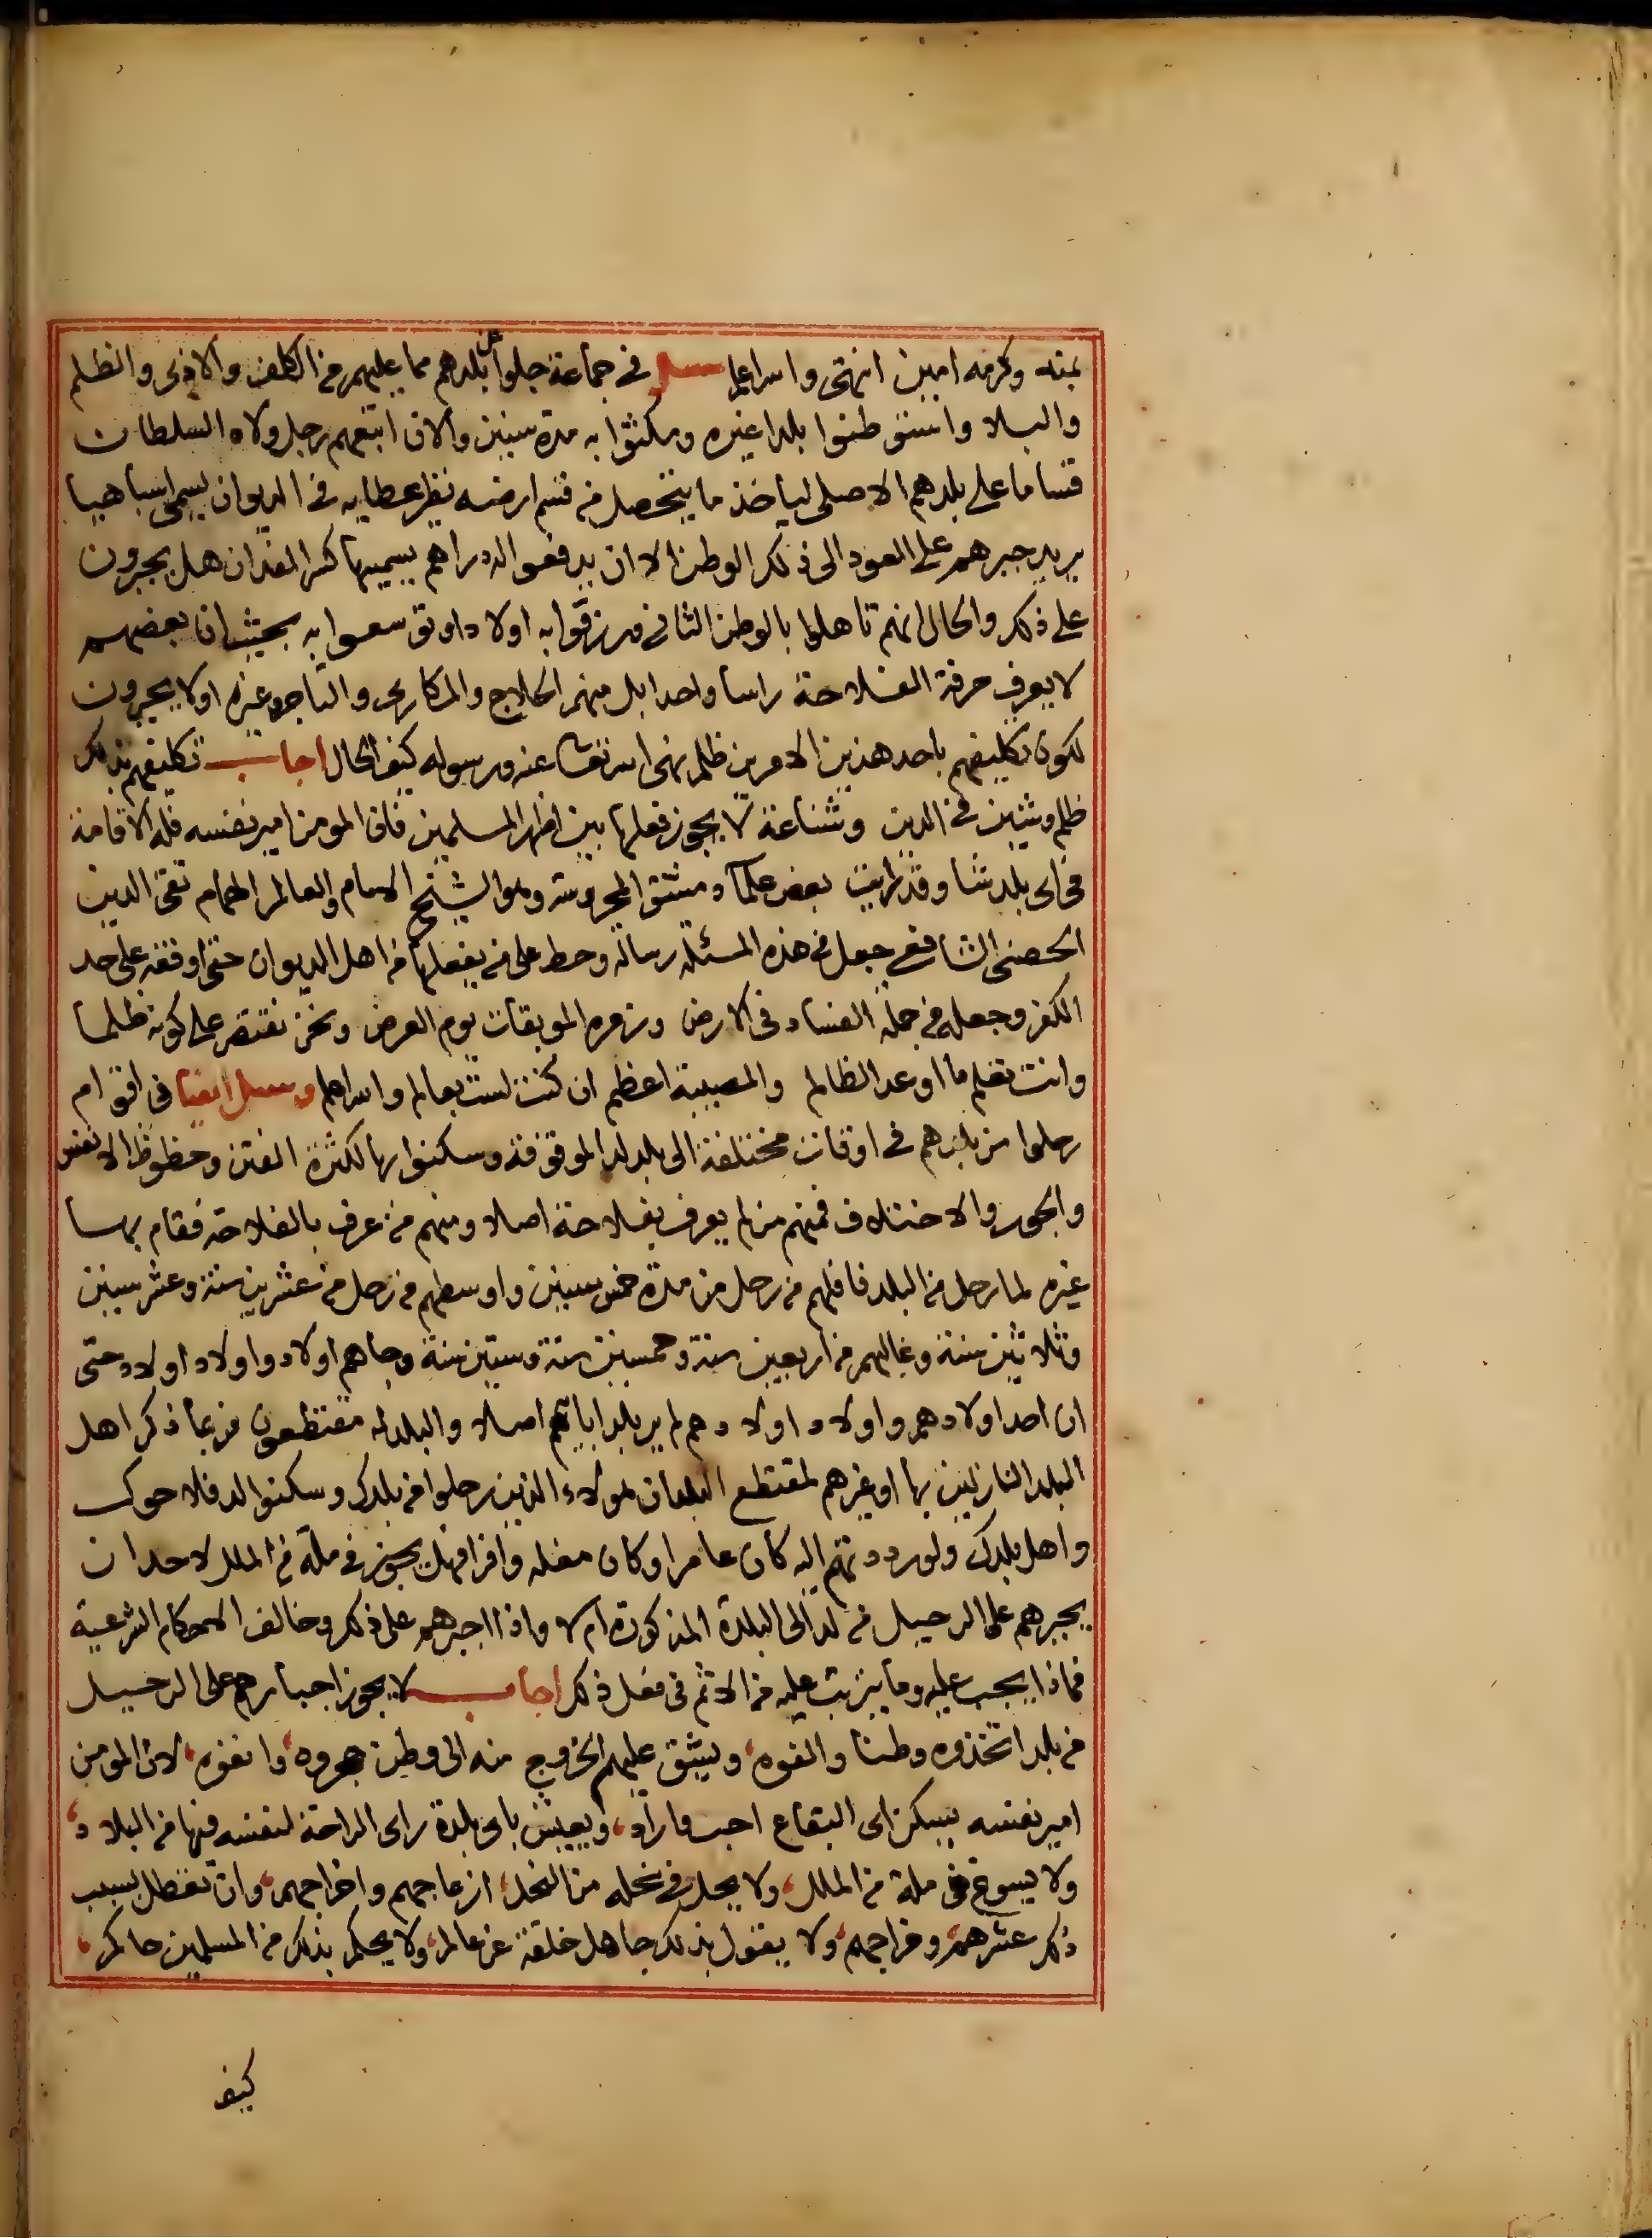 بمنه وكرمه امين انتهى والله اعلم سئل في جماعة جلوا عن بلدهم مما عليهم من الكلف والاذى والظلم
والبلا واستوطنوا بلدا غيره ومكثوا به مدة سنين والان اتبعهم رجل ولاه السلطان
قساما على بلدهم الاصلي لياخذ ما يتحصل من قسم ارضه نظير عطايه في الديوان يسمى اسباهيا
يريد جبرهم على العود الى ذلك الوطن الا ان يدفعوا له دراهم يسميها كسر الفدان هل يجبرون
على ذلك والحال انهم تاهلوا بالوطن الثاني ورزقوا به اولادا وتوسعوا به بحيث ان بعضهم
لا يعرف حرفة الفلاحة راسا واحدا بل منهم الحلاج والمكاري والتاجر وغيره او لا يجبرون
لكون تكليفهم باحد هذين الامرين ظلم نهى الله تعالى عنه ورسوله كيف الحال اجاب تكليفهم بذلك
ظلم وشين في الدين وشناعة لا يجوز فعلها بين اظهر المسلمين فان المومن امير نفسه فله الاقامة
في اي بلد شا وقد رايت بعض علماء دمشق المحروسة وهو الشيخ الامام والعالم الهمام تقي الدين
الحصني الشافعي جعل في هذه المسئلة رسالة وحط على من يفعلها من اهل الديوان حتى اوقفه على حد
الكفر وجعله من جملة الفساد في الارض وزمرة الموبقات يوم العرض ونحن نقتصر على كونه ظلما
وانت تعلم ما اوعد الظالم والمصيبة اعظم ان كنت لست بعالم والله اعلم وسئل ايضا في اقوام
رحلوا من بلدهم في اوقات مختلفة الى بلد لد الموقوفة وسكنوا بها لكثرة الفتن وحظوظ الانفس
والجور والاختلاف فمنهم من لم يعرف بفلاحة اصلا ومنهم من عرف بالفلاحة فقام بها
غيره لما رحل من البلد فاقلهم من رحل من مدة خمس سنين واوسطهم من رحل من عشرين سنة وعشر سنين
وثلاثين سنة وغالبهم من اربعين سنة وخمسين سنة وستين سنة وجاهم اولاد واولاد اولاد حتى
ان احد اولادهم واولاد اولادهم لم ير بلد ابايهم اصلا والبلد له مقتطعون فربما ذكر اهل
البلد النازلين بها او غيرهم لمقتطع البلد ان هولاء الذين رحلوا من بلدك وسكنوا لد فلاحوك
واهل بلدك ولو رددتهم اليه كان عامرا وكان مغله وافرا فهل يجوز في ملة من الملل لاحد ان
يجبرهم على الرحيل من لد الى البلدة المذكورة ام لا واذا اجبرهم على ذلك وخالف الاحكام الشرعية
فماذا يجب عليه وما يترتب عليه من الاثم في فعل ذلك اجاب لا يجوز اجبارهم على الرحيل
من بلد اتخذوه وطنا والفوه، ويشق عليهم الخروج منه الى وطن هجروه، وانفوه، لان المومن
امير نفسه يسكن اي البقاع احب واراد، ويعيش باي بلدة راى الراحة لنفسه فيها من البلاد،
ولا يسوغ في ملة من الملل، ولا يحل في نحلة من النحل، ازعاجهم واخراجهم، وان تعطل بسبب
ذلك عشرهم، وخراجهم، ولا يقول بذلك جاهل خلقة عن عالم، ولا يحكم بذلك من المسلمين حاكم،
كيف